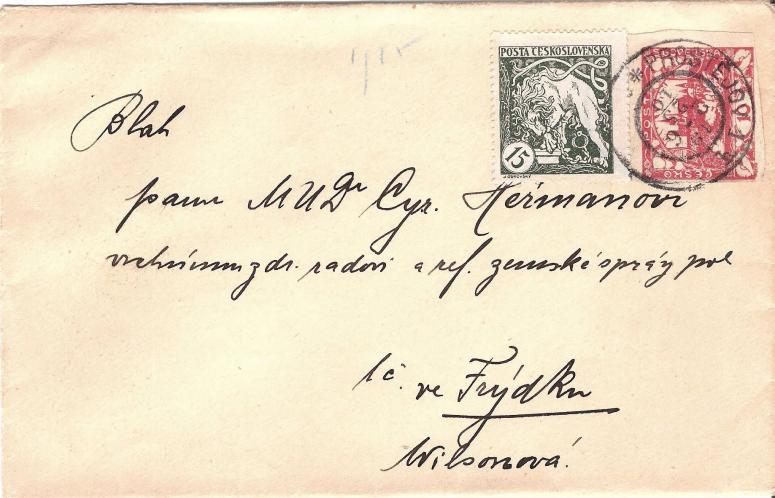 POSTA ČESKOSLOVENSKA
15
PROSTĚJOV 1
ČESKO
Blah
panu MUDr Cyr. Heřmanovi
vrchnímu zdr. radovi a ref. zemské správy pol
tč. ve Frýdku
Wilsonová.